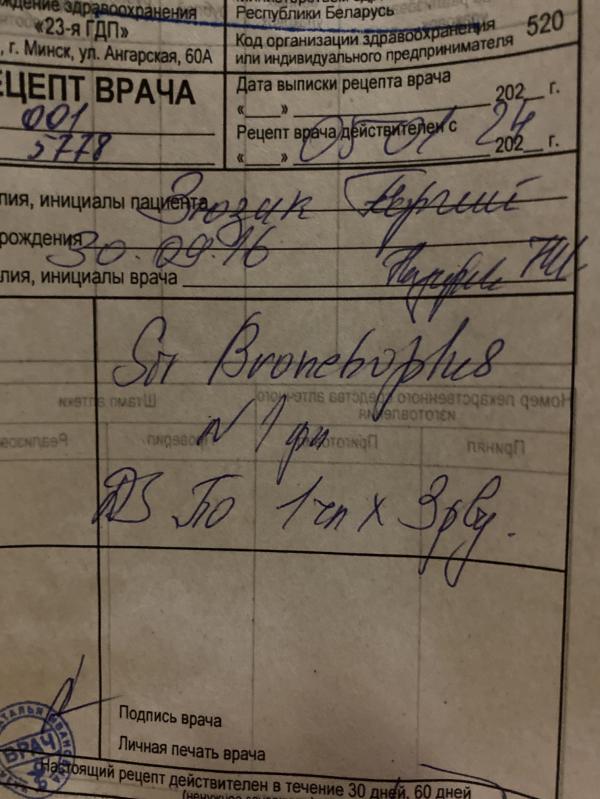 ждение здравоохранения
«23-я ГДП»
, г. Минск, ул. Ангарская, 60А
Республики Беларусь
Код организации здравоохранения 520
или индивидуального предпринимателя
ЕЦЕПТ ВРАЧА
001
5778
Дата выписки рецепта врача
«___» ___ 202__ г.
Рецепт врача действителен с
«___» 05 01 24 202__ г.
лия, инициалы пациента
рождения 30.09.16
лия, инициалы врача
Sir
N 1 фл
ДS По 1 чл х 3 р/д.
Штамп аптеки
Номер лекарственного средства аптечного
изготовления
Приготовил
Проверил
Принял
Подпись врача
Личная печать врача
ВРАЧ
Настоящий рецепт действителен в течение 30 дней, 60 дней